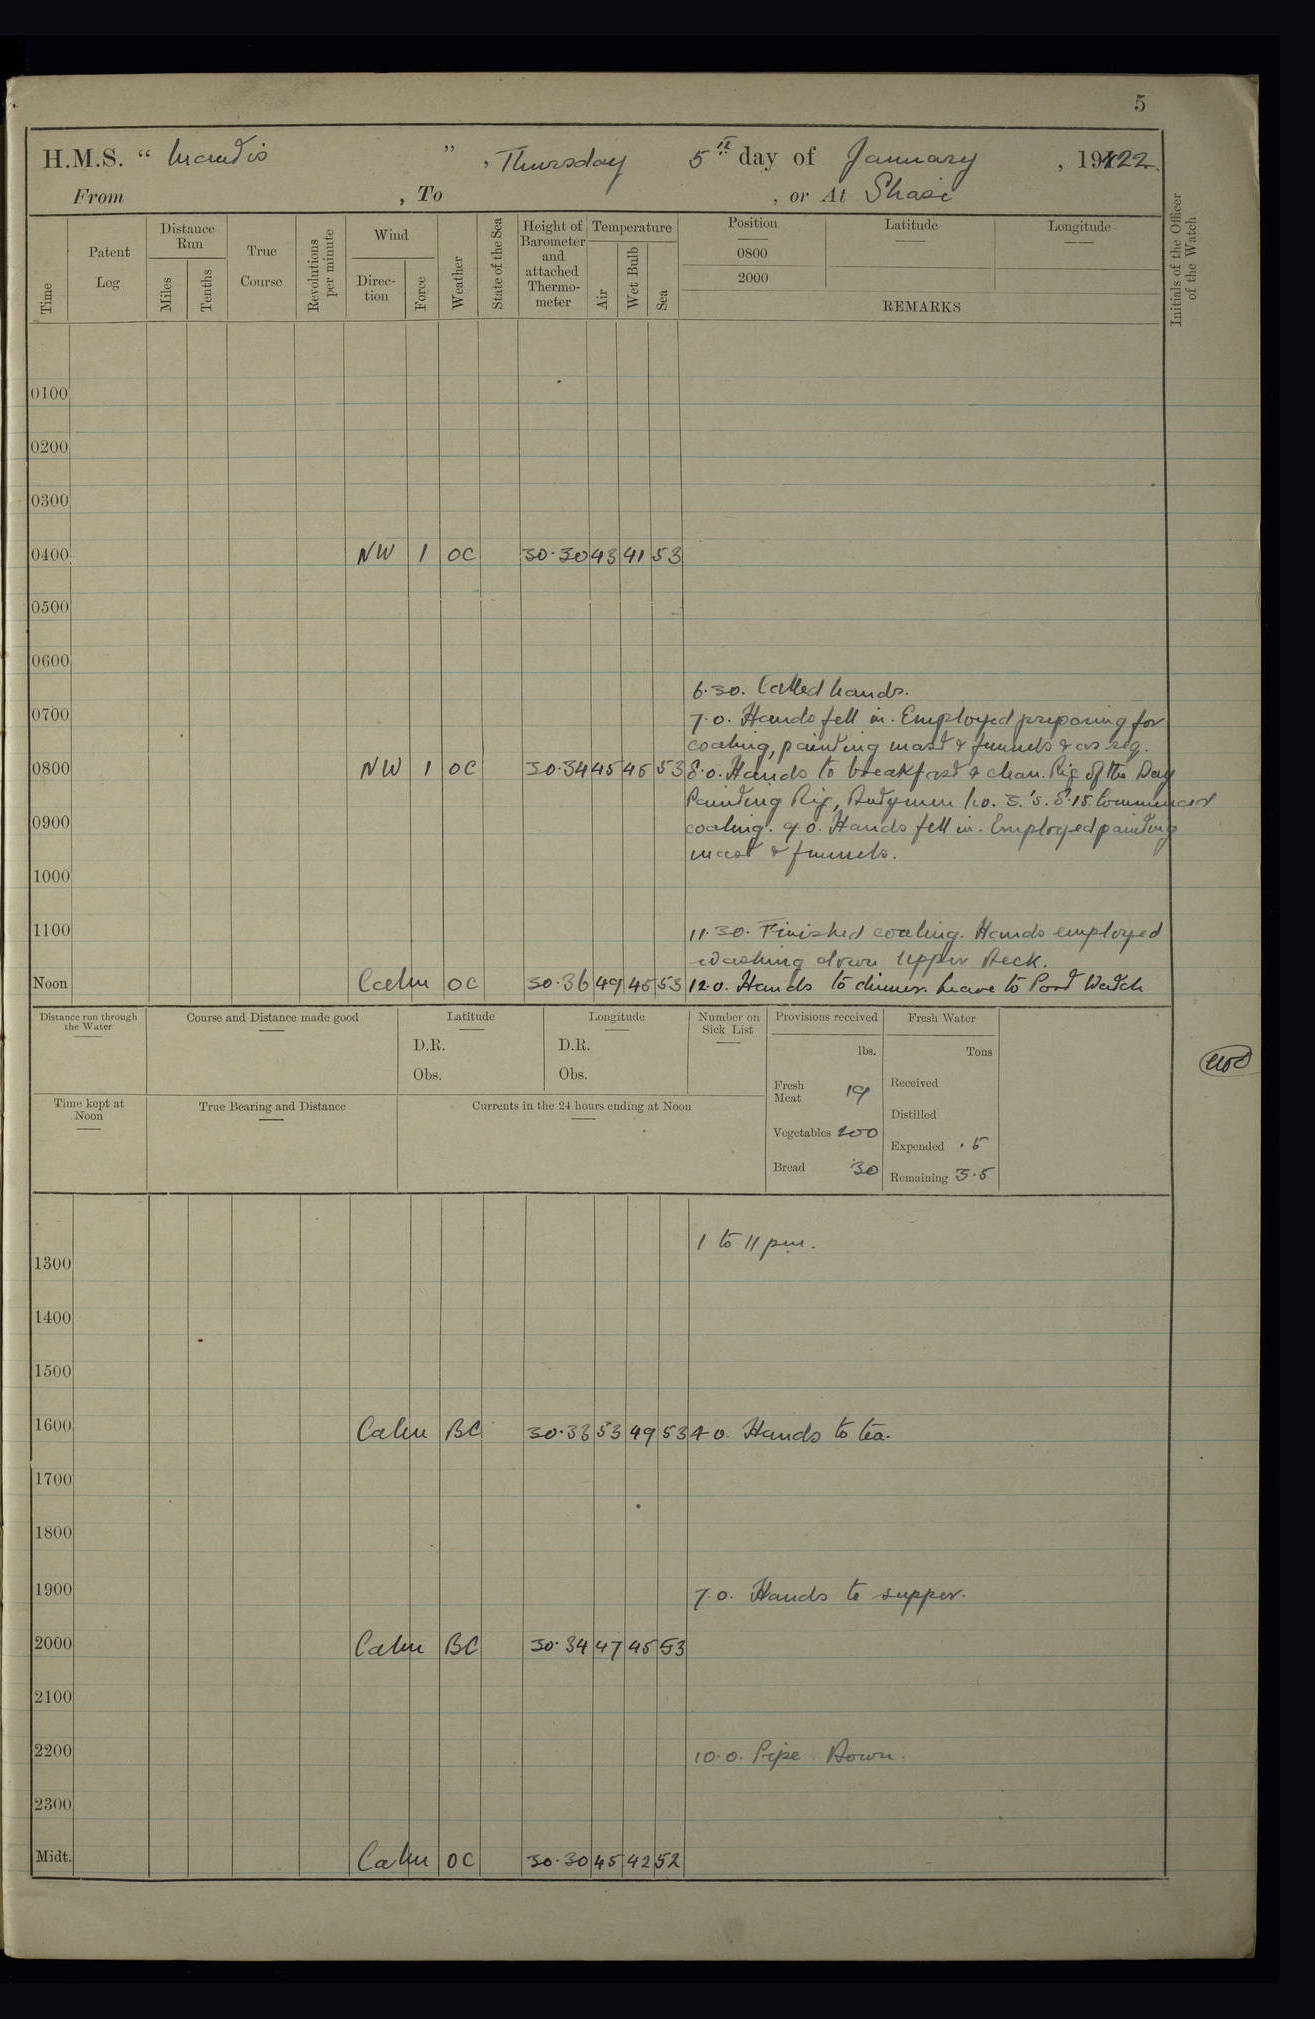 5
H.M.S. " Mantis " , Thursday 5th day of January , 1922.
From , To , or At Shasi
Time
Patent Log
Distance Run
Miles
Tenths
True Course
Revolutions per minute
Wind
Direction
Force
Weather
State of the Sea
Height of Barometer and attached Thermometer
Temperature
Air
Wet Bulb
Sea
Position
0800
2000
Latitude
Longitude
REMARKS
Initials of the Officer of the Watch
0100
0200
0300
0400 NW 1 OC 30.30 43 41 53
0500
0600
6.30. Called hands.
0700 7.0. Hands fell in. Employed preparing for
coaling, painting mast & funnels & as req.
0800 NW 1 OC 30.34 45 45 53 8.0. Hands to breakfast & clean. Rig of the Day
Painting Rig, Dutymen No. 3.'s. 8.15 Commenced
0900 coaling. 9.0. Hands fell in. Employed painting
mast & funnels.
1000
1100 11.30. Finished coaling. Hands employed
washing down Upper Deck.
Noon Calm OC 30.36 49 45 53 12.0. Hands to dinner. Leave to Port Watch
Distance run through the Water
Course and Distance made good
Latitude
D.R.
Obs.
Longitude
D.R.
Obs.
Number on Sick List
Provisions received
lbs.
Fresh Meat 19
Vegetables 200
Bread 30
Fresh Water
Tons
Received
Distilled
Expended .5
Remaining 3.5
Time kept at Noon
True Bearing and Distance
Currents in the 24 hours ending at Noon
1 to 11 pm.
1300
1400
1500
1600 Calm BC 30.33 53 49 53 4.0. Hands to tea.
1700
1800
1900 7.0. Hands to supper.
2000 Calm BC 30.34 47 45 53
2100
2200 10.0. Pipe Down.
2300
Midt. Calm OC 30.30 45 42 52